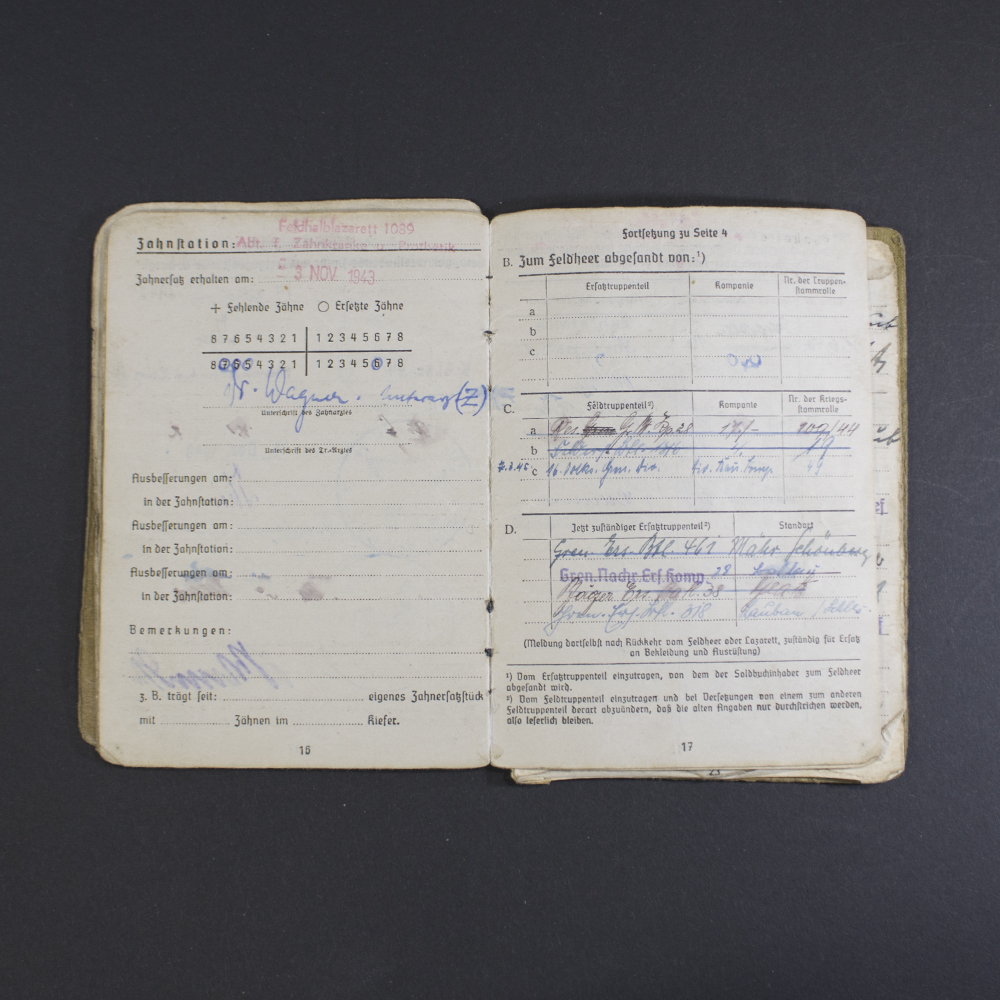 Feldhalblazarett 1089
Zahnstation: Abt. f. Zahnkranke u. Prothetik
Zahnersatz erhalten am: - 3 NOV. 1943
+ Fehlende Zähne ○ Ersetzte Zähne
8 7 6 5 4 3 2 1 | 1 2 3 4 5 6 7 8
8 7 6 5 4 3 2 1 | 1 2 3 4 5 6 7 8
Dr. Wagner. Unterarzt (Z)
Unterschrift des Zahnarztes
Unterschrift des Tr.-Arztes
Ausbesserungen am:
in der Zahnstation:
Ausbesserungen am:
in der Zahnstation:
Ausbesserungen am:
in der Zahnstation:
Bemerkungen:
z. B. trägt seit: eigenes Zahnersatzstück
mit Zähnen im Kiefer.
16
Fortsetzung zu Seite 4
B. Zum Feldheer abgesandt von: ¹)
Ersatztruppenteil Kompanie Nr. der Truppen-
stammrolle
a
b
c
C. Feldtruppenteil ²) Kompanie Nr. der Kriegs-
stammrolle
a 28 200/44
b 49
c 16. Volks. Gren. Div. 49
D. Jetzt zuständiger Ersatztruppenteil ²) Standort
Gren. Ers. Btl. 461 Mähr. Schönberg
Gren. Nachr. Ers. Komp. 28
Ers. 38
Gren. 318 Lauban / Schles.
(Meldung dortselbst nach Rückkehr vom Feldheer oder Lazarett, zuständig für Ersatz
an Bekleidung und Ausrüstung)
¹) Vom Ersatztruppenteil einzutragen, von dem der Soldbuchinhaber zum Feldheer
abgesandt wird.
²) Vom Feldtruppenteil einzutragen und bei Versetzungen von einem zum anderen
Feldtruppenteil derart abzuändern, daß die alten Angaben nur durchstrichen werden,
also leserlich bleiben.
17